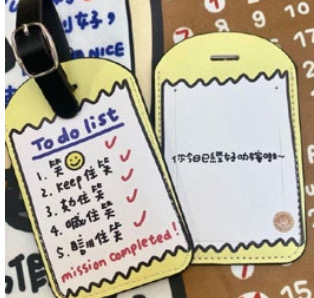 好,
NICE
To do list
1. 笑
2. keep住笑
3. 住笑
4. 喊住笑
5. 瞓住笑
mission completed!
你今日已經好叻啦~
15